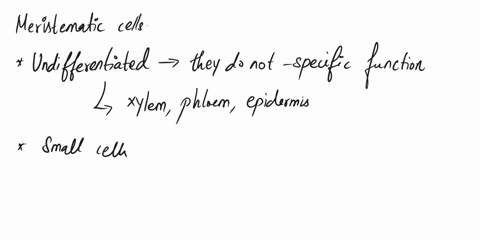 Meristematic cells.
* Undifferentiated → they do not -specific function
↳ xylem, phloem, epidermis
* Small cell